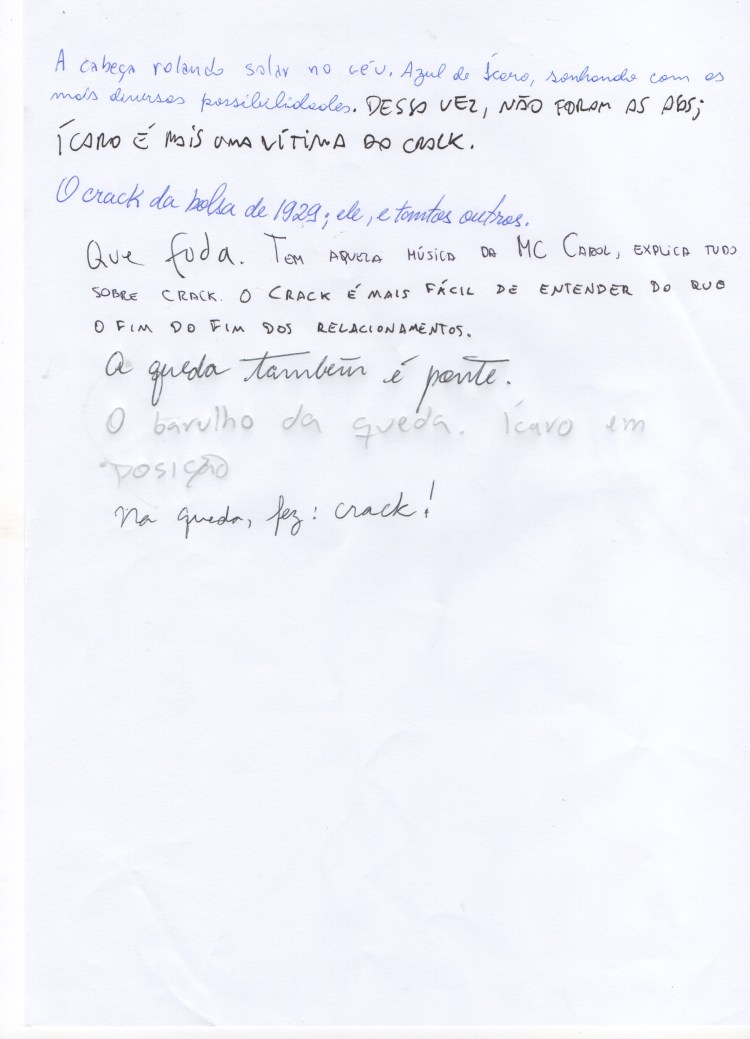 A cabeça rolando solar no céu. Azul de Ícaro, sonhando com as
mais diversas possibilidades. DESSA VEZ, NÃO FORAM AS ASAS;
ÍCARO É MAIS UMA VÍTIMA DO CRACK.
O crack da bolsa de 1929; ele, e tantos outros.
Que foda. TEM AQUELA MÚSICA DA MC CAROL, EXPLICA TUDO
SOBRE CRACK. O CRACK É MAIS FÁCIL DE ENTENDER DO QUE
O FIM DO FIM DOS RELACIONAMENTOS.
A queda também é ponte.
O barulho da queda. Ícaro em
posição
Na queda, fez: crack!